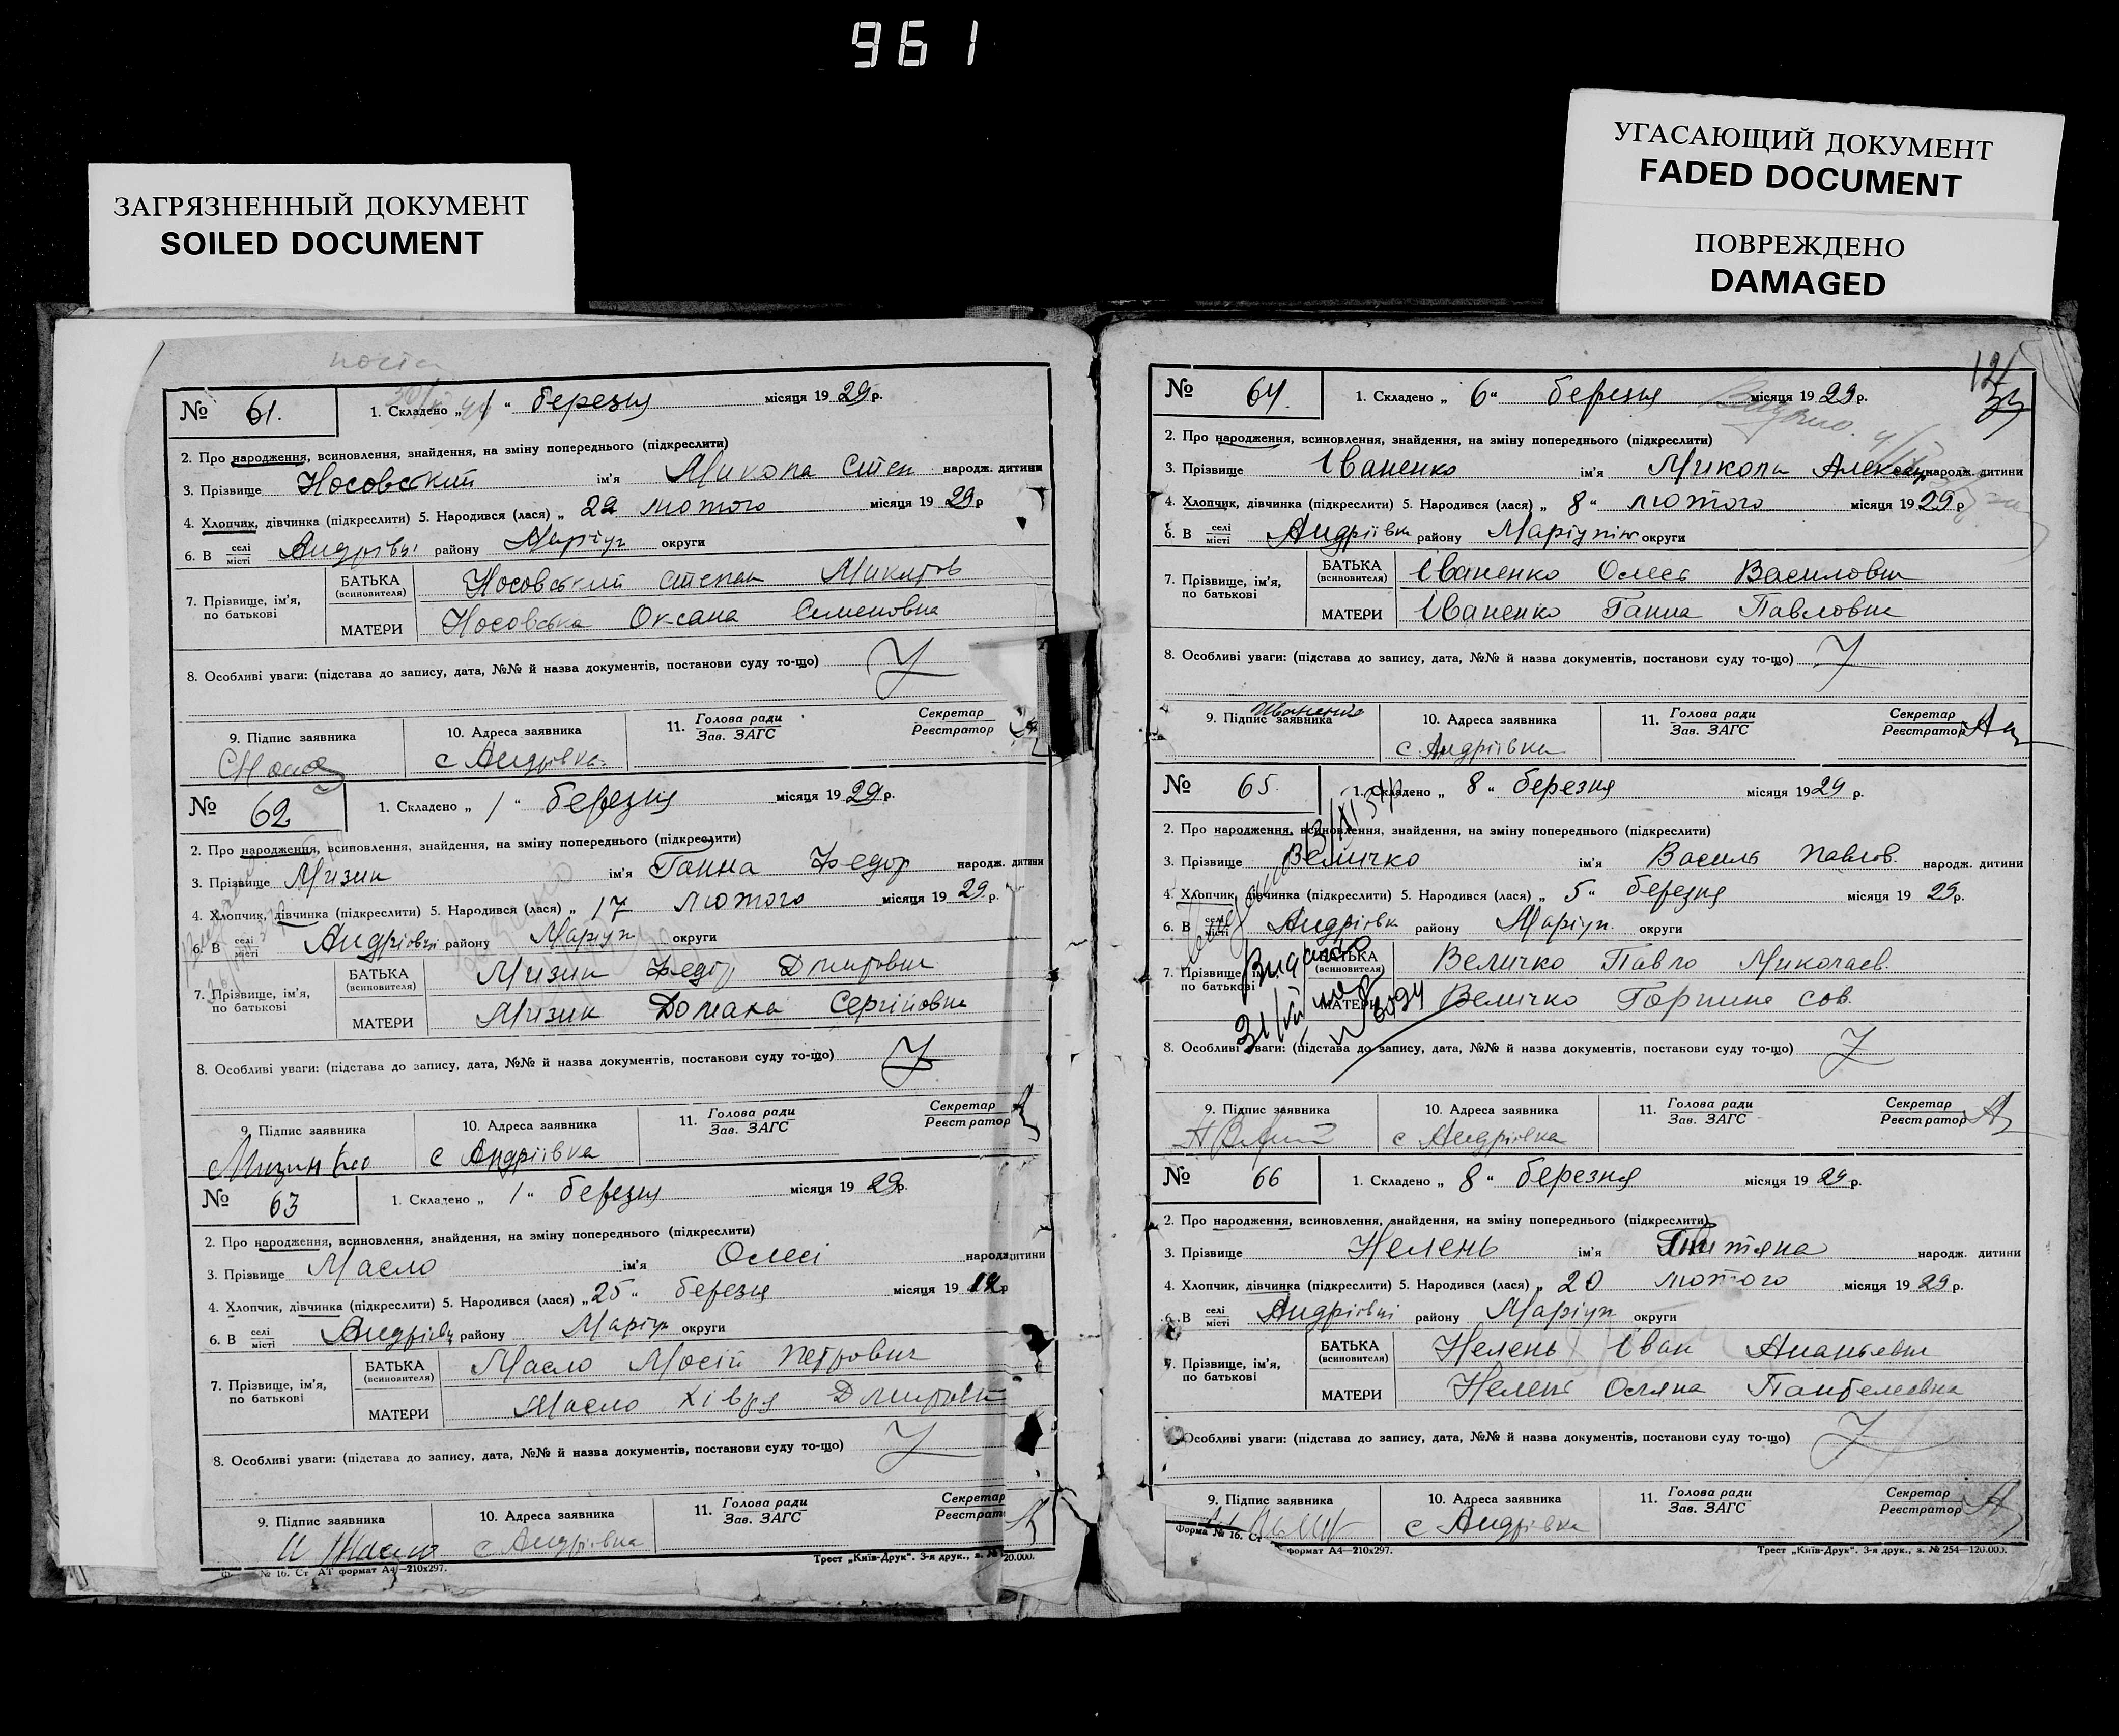 961
ЗАГРЯЗНЕННЫЙ ДОКУМЕНТ
SOILED DOCUMENT
УГАСАЮЩИЙ ДОКУМЕНТ
FADED DOCUMENT
ПОВРЕЖДЕНО
DAMAGED
№ 61. 1. Складено „ 1 “ березня місяця 19 29 р.
2. Про народження, всиновлення, знайдення, на зміну попереднього (підкреслити)
3. Прізвище Носовский ім'я Микола Степ народж. дитини
4. Хлопчик, дівчинка (підкреслити) 5. Народився (лася) „ 22 лютого місяця 19 29 р
6. В селі місті Андрівці району Маріуп округи
7. Прізвище, ім'я, по батькові
БАТЬКА (всиновителя) Носовський Степан Микитов
МАТЕРИ Носовська Оксана Семеновна
8. Особливі уваги: (підстава до запису, дата, №№ й назва документів, постанови суду то-що)
9. Підпис заявника 10. Адреса заявника 11. Голова ради Зав. ЗАГС Секретар Реєстратор
с Андрівка
№ 62 1. Складено „ 1 “ березня місяця 19 29 р.
2. Про народження, всиновлення, знайдення, на зміну попереднього (підкреслити)
3. Прізвище Мизин ім'я Ганна Федор народж. дитини
4. Хлопчик, дівчинка (підкреслити) 5. Народився (лася) „ 17 лютого місяця 19 29 р.
6. В селі місті Андріовці району Маріуп округи
7. Прізвище, ім'я, по батькові
БАТЬКА (всиновителя) Мизин Федір Дмитрович
МАТЕРИ Мизик Домаха Сергійовна
8. Особливі уваги: (підстава до запису, дата, №№ й назва документів, постанови суду то-що)
9. Підпис заявника 10. Адреса заявника 11. Голова ради Зав. ЗАГС Секретар Реєстратор
с Андріівка
№ 63 1. Складено „ 1 “ березня місяця 19 29 р.
2. Про народження, всиновлення, знайдення, на зміну попереднього (підкреслити)
3. Прізвище Масло ім'я Олесі народж. дитини
4. Хлопчик, дівчинка (підкреслити) 5. Народився (лася) „ 25 “ березня місяця 19 р
6. В селі місті Андріівц району Маріуп округи
7. Прізвище, ім'я, по батькові
БАТЬКА (всиновителя) Масло Мосій Петрович
МАТЕРИ Масло Хівря Дмитрівн
8. Особливі уваги: (підстава до запису, дата, №№ й назва документів, постанови суду то-що)
9. Підпис заявника 10. Адреса заявника 11. Голова ради Зав. ЗАГС Секретар Реєстрат
Масло с Андрівка
№ 16. Ст АТ формат А4—210х297. Трест „Київ-Друк“. 3-я друк., з. № 20.000.
№ 64. 1. Складено „ 6 “ березня місяця 19 29 р.
2. Про народження, всиновлення, знайдення, на зміну попереднього (підкреслити)
3. Прізвище Іваненко ім'я Микола Александ народж. дитини
4. Хлопчик, дівчинка (підкреслити) 5. Народився (лася) „ 8 “ лютого місяця 19 29 р
6. В селі місті Андріівка району Маріупіль округи
7. Прізвище, ім'я, по батькові
БАТЬКА (всиновителя) Іваненко Олесь Василович
МАТЕРИ Іваненко Ганна Павловна
8. Особливі уваги: (підстава до запису, дата, №№ й назва документів, постанови суду то-що)
9. Підпис заявника 10. Адреса заявника 11. Голова ради Зав. ЗАГС Секретар Реєстратор
Иваненко с Андріівка
№ 65. 1. Складено „ 8 “ березня місяця 19 29 р.
2. Про народження, всиновлення, знайдення, на зміну попереднього (підкреслити)
3. Прізвище Величко ім'я Василь Павлов. народж. дитини
4. Хлопчик, дівчинка (підкреслити) 5. Народився (лася) „ 5 “ березня місяця 19 29 р.
6. В селі місті Андріівка району Маріуп. округи
7. Прізвище, ім'я, по батькові
БАТЬКА (всиновителя) Величко Павло Миколаев.
МАТЕРИ Величко Горпина Сов.
8. Особливі уваги: (підстава до запису, дата, №№ й назва документів, постанови суду то-що)
9. Підпис заявника 10. Адреса заявника 11. Голова ради Зав. ЗАГС Секретар Реєстратор
с Андріівка
№ 66 1. Складено „ 8 “ березня місяця 19 29 р.
2. Про народження, всиновлення, знайдення, на зміну попереднього (підкреслити)
3. Прізвище Нелень ім'я народж. дитини
4. Хлопчик, дівчинка (підкреслити) 5. Народився (лася) „ 20 лютого місяця 19 29 р.
6. В селі місті Андріівці району Маріуп округи
7. Прізвище, ім'я, по батькові
БАТЬКА (всиновителя) Нелень Іван Ананьевич
МАТЕРИ Нелень Оляна Пантелеовна
Особливі уваги: (підстава до запису, дата, №№ й назва документів, постанови суду то-що)
9. Підпис заявника 10. Адреса заявника 11. Голова ради Зав. ЗАГС Секретар Реєстратор
с Андрівка
Форма № 16. Ст формат А4—210х297. Трест „Київ-Друк“. 3-я друк., з. № 254—120.000.